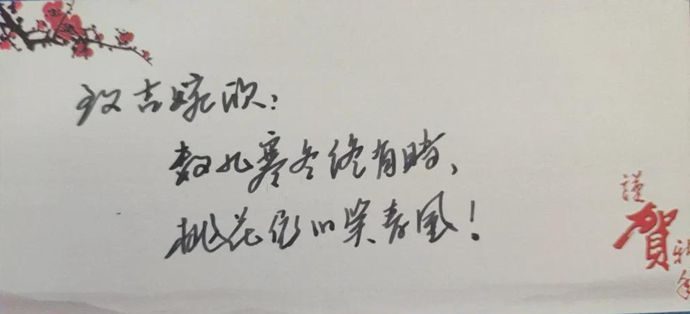 致吉婉欣：
数九寒冬终有时，
桃花依旧笑春风！
谨
賀
新年